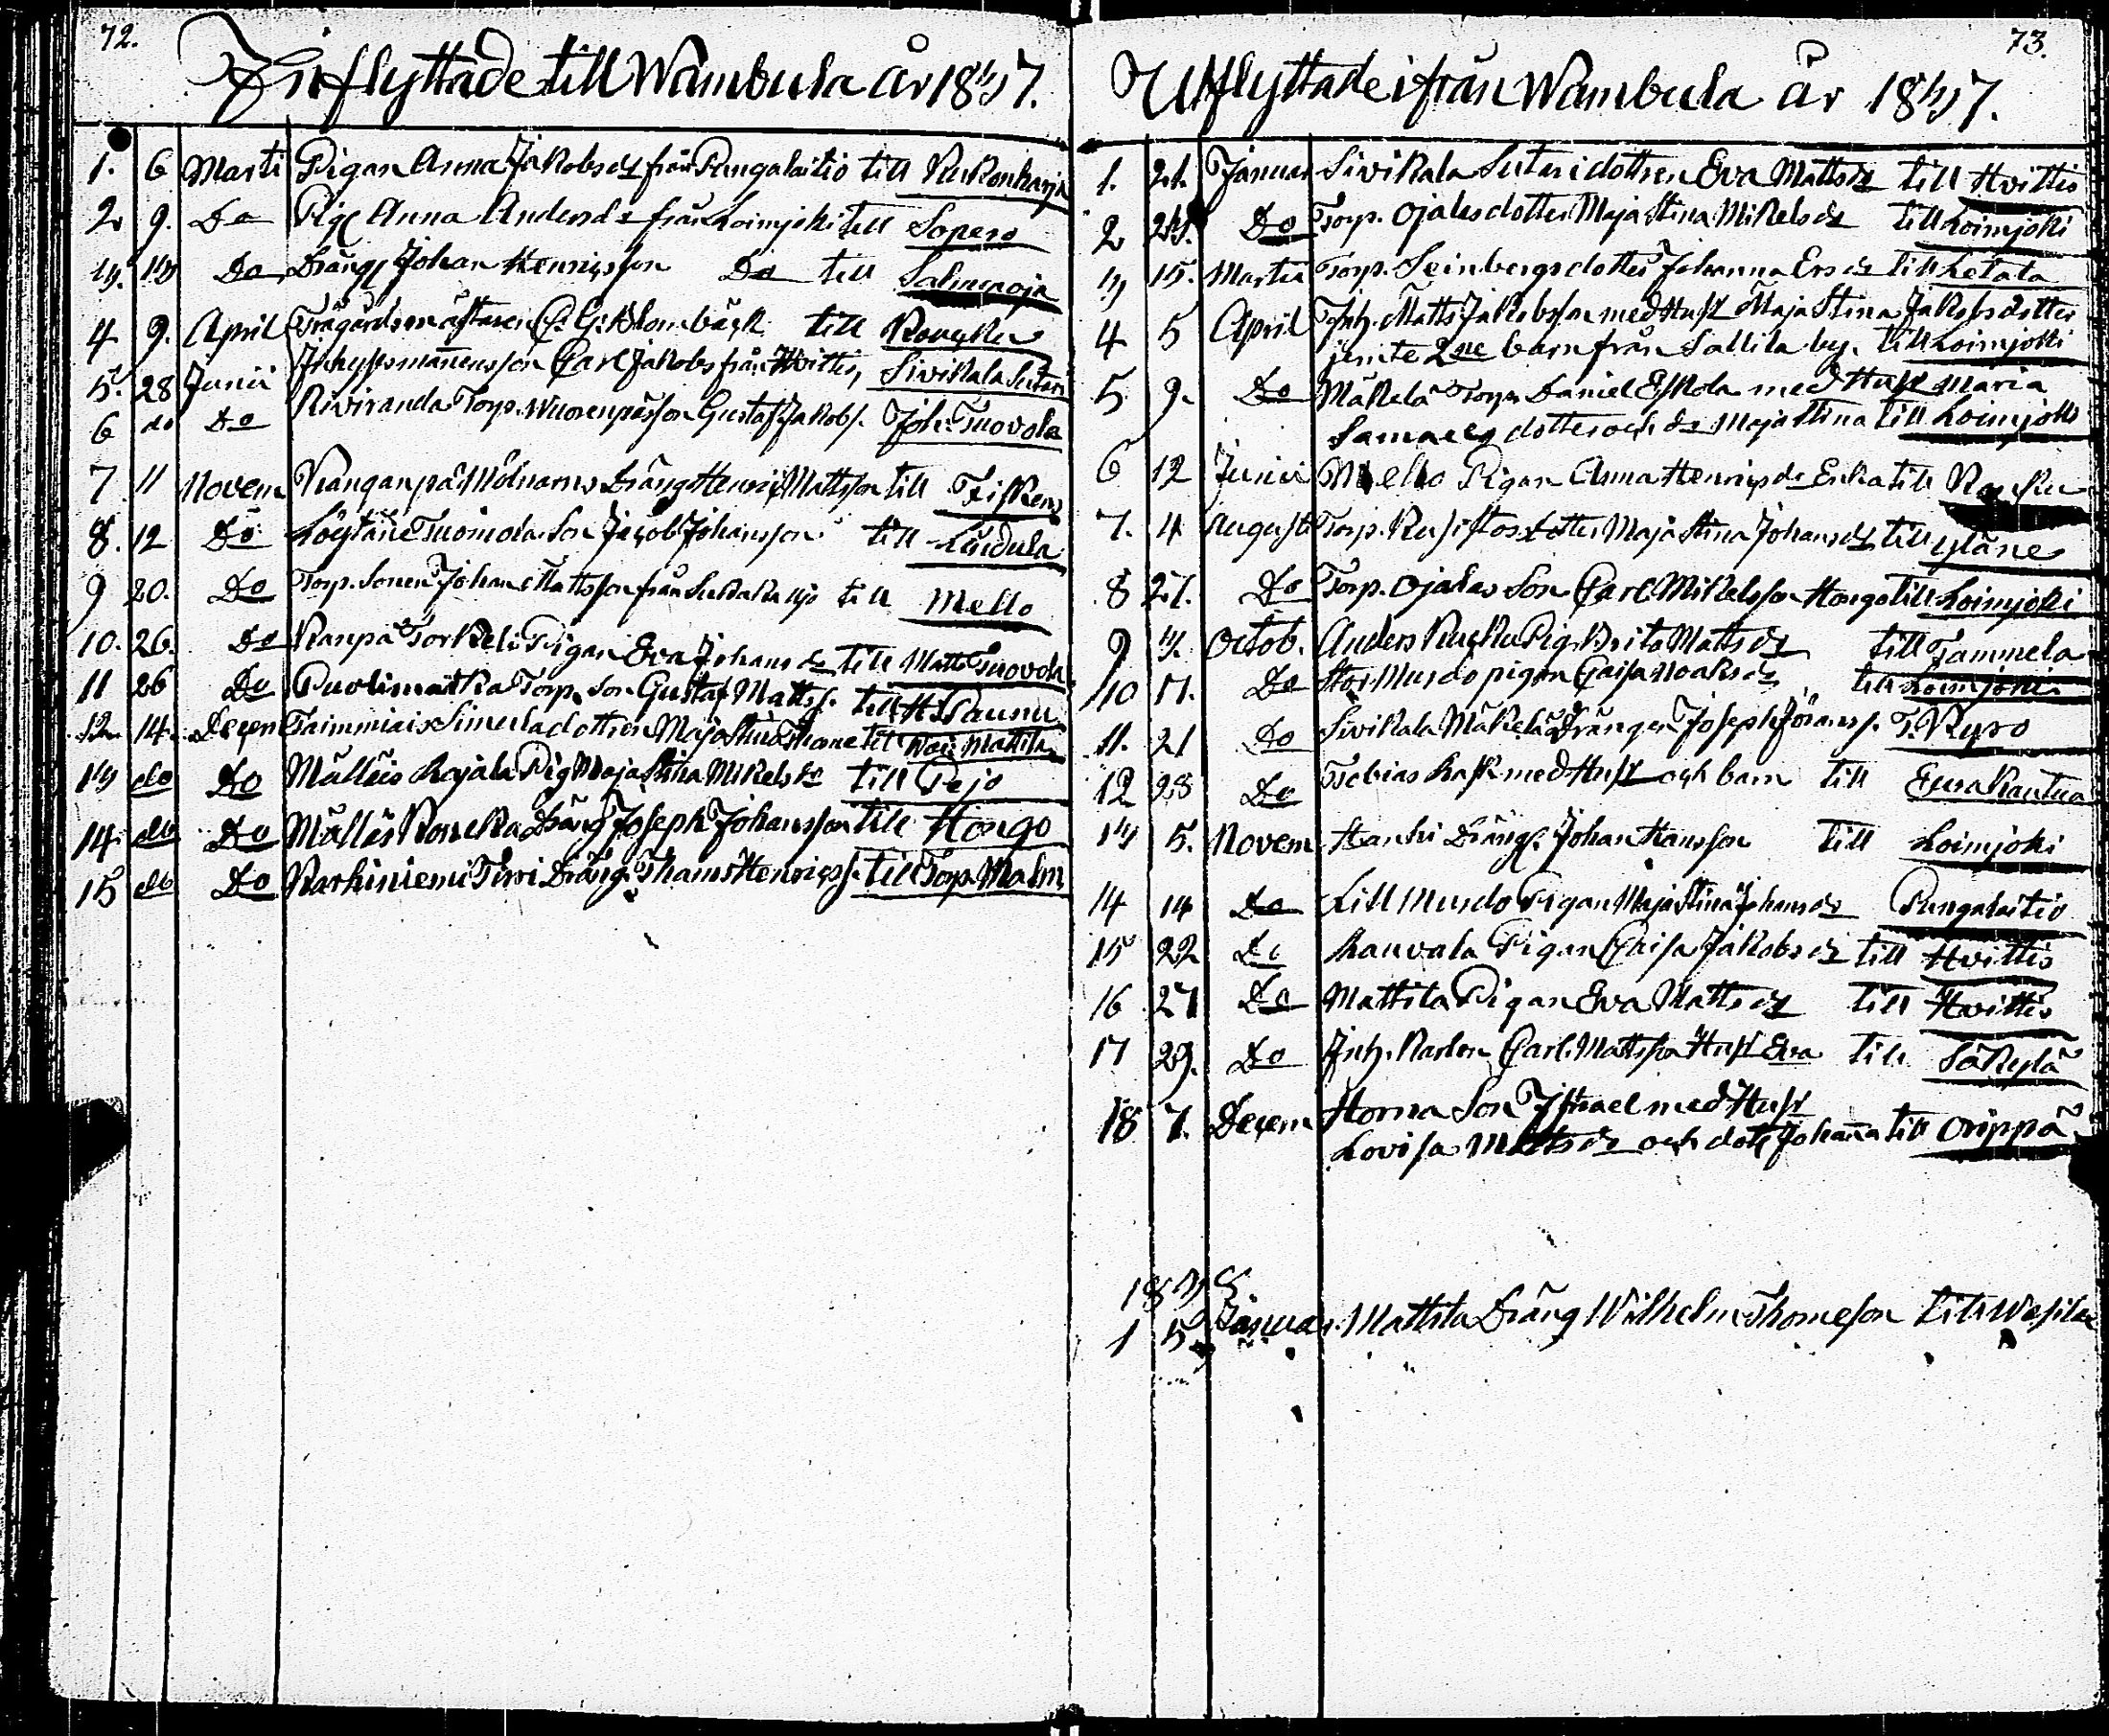 72.
Inflyttade till Wambula År 1837.
1. 6 Marti Pigan Anna Jakobsdr från Pungalaitio till Kukonharja
2 9. Do Pig Anna Andersdr från Loimjoki till Sopero
3. 13 Do Dräng Johan Henricsson Do till Salmenoja
4 9. April Trägårdsmästaren C. G. Blombäck till Roucku
5. 28 Junii Inhysmannensson Carl Jakobs från Hvittis, Sivikala Sutari
6 do Do Riviranda Torp. Wuorenpäs son Gustaf Jakobs. Joh. Tuovola
7 11 Novem Kanganpä Mölnarns Dräng Henric Mattsson till Fisken
8. 12 Do Löytäne Tuomola Son Jacob Johansson till Luidula
9 20. Do Torp. Sonen Johan Mattsson från till Mello
10. 26. Do Kanpä Torkeli Pigan Eva Johansdr till Matts Tuovola
11 26 Do Puolimatka Torp. Son Gustaf Matts. till H. Paunu
12. 14. Decem Taimmiais Simula dottren Maja Stina Thome till Mattila
13 do Do Mälläis Rajala Pig Maja Stina Mikelsdr till Pejo
14. do Do Mälläs Roucka Dräng Joseph Johansson till Hongo
15 do Do Karhiniemi Tirri Dräng Thoms Henricss. till Torp. Malm
73.
Utflyttade ifrån Wambula år 1837.
1. 21. Januar Sivikala Sutari dottren Eva Mattsdr till Hvittis
2 23. Do Torp. Ojalas dotter Maja Stina Mikelsdr till Loimjoki
3 15. Martii Torp. Seinbergs dotter Johanna Ersdr till Letala
4 5 April Inh. Matts Jakobsson med Hust Maja Stina Jakobsdotter
jemte 2ne barn från Sallila by. till Loimjoki
5 9. Do Mäkelä Torp. Daniel Eskola med Hust Maria
Samuelsdotter och dr Maja Stina till Loimjoki
6 12 Junii Mello Pigan Anna Henricsdr Enka till
7. 4 Augusti Torp. Kusistos dotter Maja Stina Johansdr till Yläne
8 27. Do Torp. Ojalas Son Carl Mikelsson Hongo till Loimjoki
9 3. Octob. Anders Rucku Pig. Brita Mattsdr till Tammela
10 17. Do Stor Murdo pigan Caisa Noaksdr till Loimjoki
11. 21 Do Sivikala Mäkelä Drängen Joseph Jöranss. T. Kyro
12 28 Do Tobias Rask med Hust och barn till Eurakautua
13 5. Novem Hanhi Drängs. Johan Hansson till Loimjoki
14 14 Do Lill Murdo Pigan Maja Stina Johansdr Pungalaitio
15 22 Do Rauvala Pigan Caisa Jakobsdr till Hvittis
16 27 Do Mattila Pigan Eva Mattsdr till Hvittis
17 29. Do Inh. Karlon Carl Mattsson Hust Eva till Säkylä
18 7. Decem Horna Son Israel med Hust
Lovisa Mattsdr och dott Johanna till Orippä
1838
1 5 Januar. Mattila Dräng Wilhelm Thomeson till